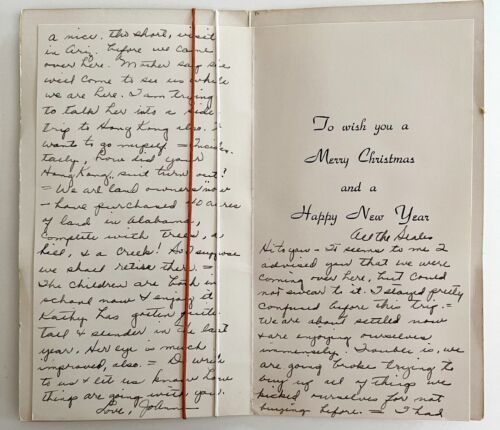 To wish you a
Merry Christmas
and a
Happy New Year
All the Heales
Hi to you - It seems to me I
advised you that we were
coming over here, but could
not swear to it. I stayed pretty
confused before this trip. =
We are about settled now
& are enjoying ourselves
immensely! Trouble is, we
are going broke trying to
buy up all of things we
kicked ourselves for not
buying before. = I had
a nice, tho short, visit
in Ariz. before we came
over here. Mother say she
will come to see us while
we are here. I am trying
to talk her into a side
trip to Hong Kong also. I
wants to go myself. = Inciden-
tally, how did your
Hong Kong suit turn out?
= We are land owners now
- have purchased 40 acres
of land in Alabama,
complete with trees, a
hill, & a creek! So I suppose
we shall retire there. =
The children are both in
school now & enjoy it
Kathy has gotten quite
tall & slender in the last
year. Her eye is much
improved, also. = Do write
to us & let us know how
things are going with you.
Love, JoAnn